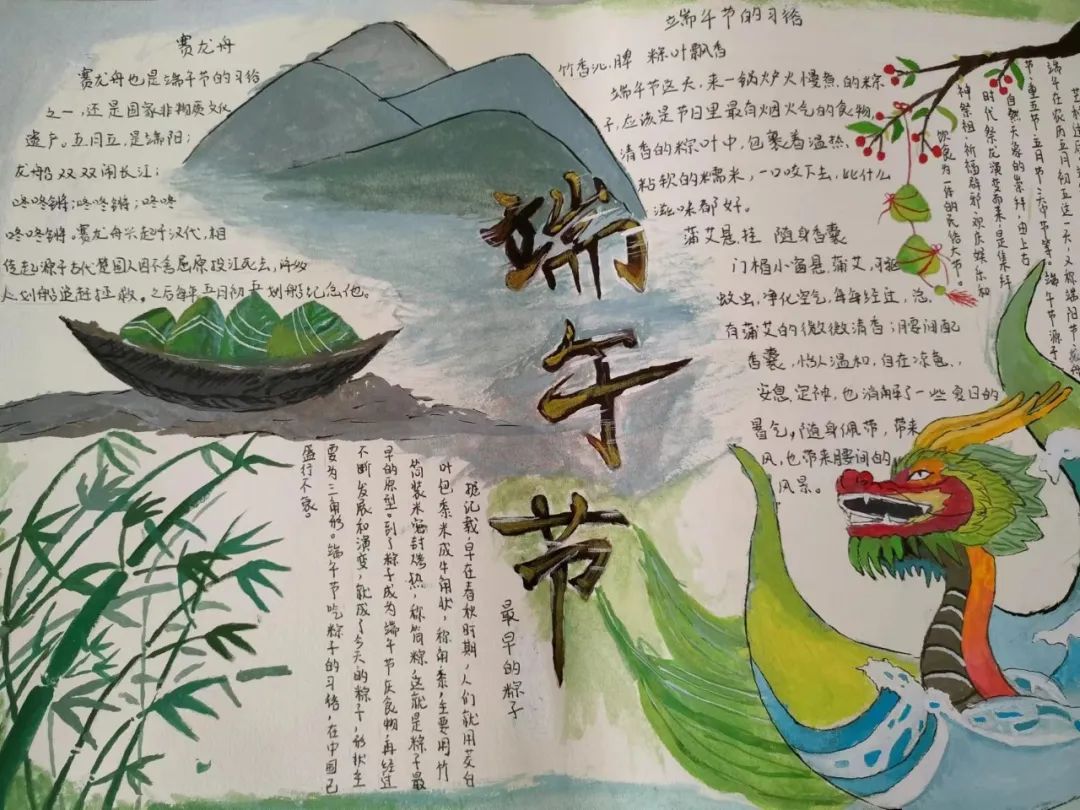 赛龙舟
赛龙舟也是端午节的习俗
之一,还是国家非物质文化
遗产。五月五,是端阳;
龙船双双闹长江;
咚咚锵;咚咚锵;咚咚
咚咚锵。赛龙舟兴起于汉代,相
传起源于古代楚国人因不舍屈原投江死去,许多
人划船追赶拯救。之后每年五月初五划船纪念他。
端午节
端午节的习俗
竹香沁脾 粽叶飘香
端午节这天,来一锅炉火慢煮的粽
子,应该是节日里最有烟火气的食物,
清香的粽叶中,包裹着温热、
粘软的糯米,一口咬下去,比什么
滋味都好。
蒲艾悬挂 随身香囊
门楣小窗悬蒲艾,可驱
蚊虫,净化空气,每每经过,总
有蒲艾的微微清香;腰间配
香囊,怡人温和,自在凉意,
安息定神,也消解了一些夏日的
暑气,随身佩带,带来
风,也带来腰间的
风景。
端午在农历五月初五这一天,又称端阳节、龙舟
节、重五节、五月节、天中节等。端午节源于
自然天象的崇拜,由上古
时代祭龙演变而来,是集拜
神祭祖、祈福辟邪、欢庆娱乐和
饮食为一体的民俗大节。
最早的粽子
据记载,早在春秋时期,人们就用茭白
叶包黍米成牛角状,称角黍;主要用竹
筒装米密封烤熟,称筒粽,这就是粽子最
早的原型。到了粽子成为端午节庆食物,再经过
不断发展和演变,就成了今天的粽子,形状主
要为三角形。端午节吃粽子的习俗,在中国已
盛行不衰。